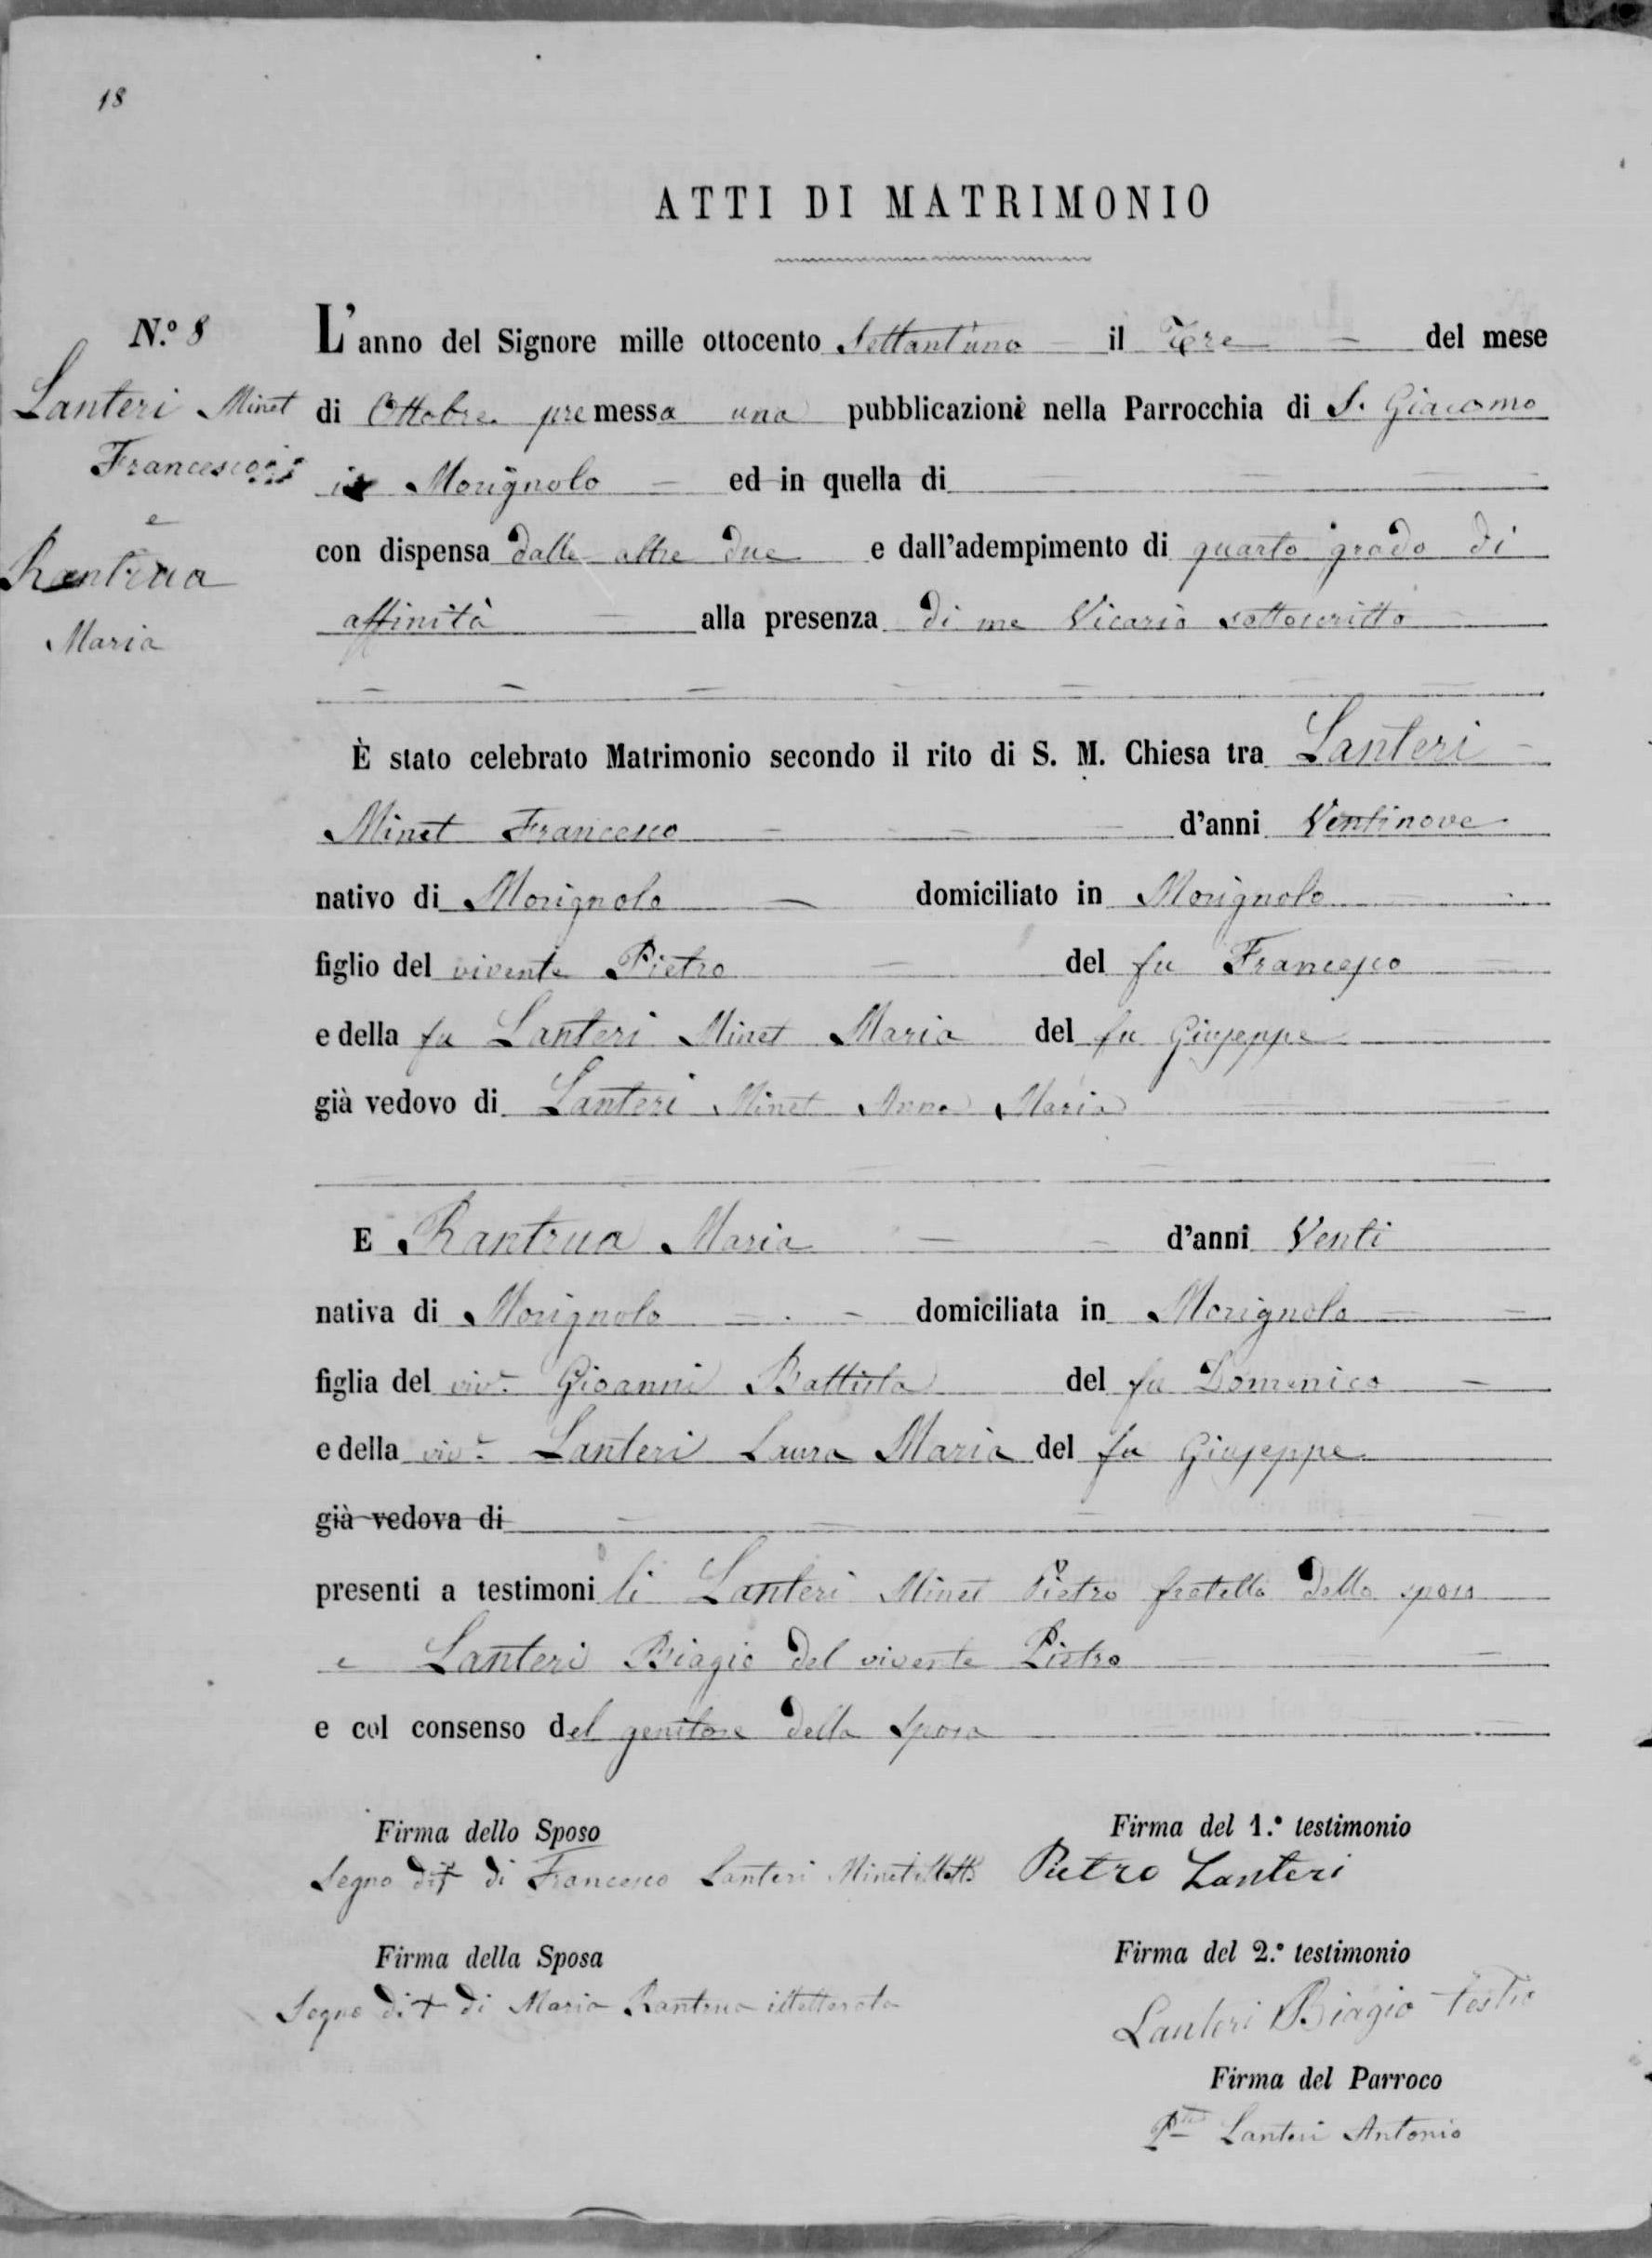 18
ATTI DI MATRIMONIO
N.º 8
Lanteri Minet
Francesco
e
Rantrua
Maria
L'anno del Signore mille ottocento Settant'uno il Tre del mese
di Ottobre premessa una pubblicazione nella Parrocchia di S. Giacomo
in Morignolo ed in quella di
con dispensa dalle altre due e dall'adempimento di quarto grado di
affinità alla presenza di me Vicario sottoscritto
È stato celebrato Matrimonio secondo il rito di S. M. Chiesa tra Lanteri
Minet Francesco d'anni Ventinove
nativo di Morignolo domiciliato in Morignolo
figlio del vivente Pietro del fu Francesco
e della fu Lanteri Minet Maria del fu Giuseppe
già vedovo di Lanteri Minet Anna Maria
E Rantrua Maria d'anni Venti
nativa di Morignolo domiciliata in Morignolo
figlia del viv.e Gioanni Battista del fu Domenico
e della viv.e Lanteri Laura Maria del fu Giuseppe
già vedova di
presenti a testimoni li Lanteri Minet Pietro fratello dello sposo
e Lanteri Biagio del vivente Pietro
e col consenso del genitore della sposa
Firma dello Sposo
Segno di + di Francesco Lanteri Minet
Firma del 1.º testimonio
Pietro Lanteri
Firma della Sposa
Segno di + di Maria Rantrua illetterata
Firma del 2.º testimonio
Lanteri Biagio testio
Firma del Parroco
Lanteri Antonio